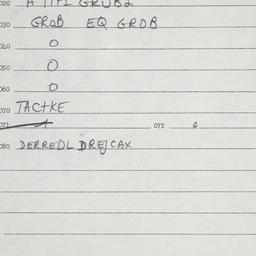 020
030 GROB EQ GROB
040 O
050 O
060 O
070 TACHKE
071 072 0
080 DERREDL DREJCAX